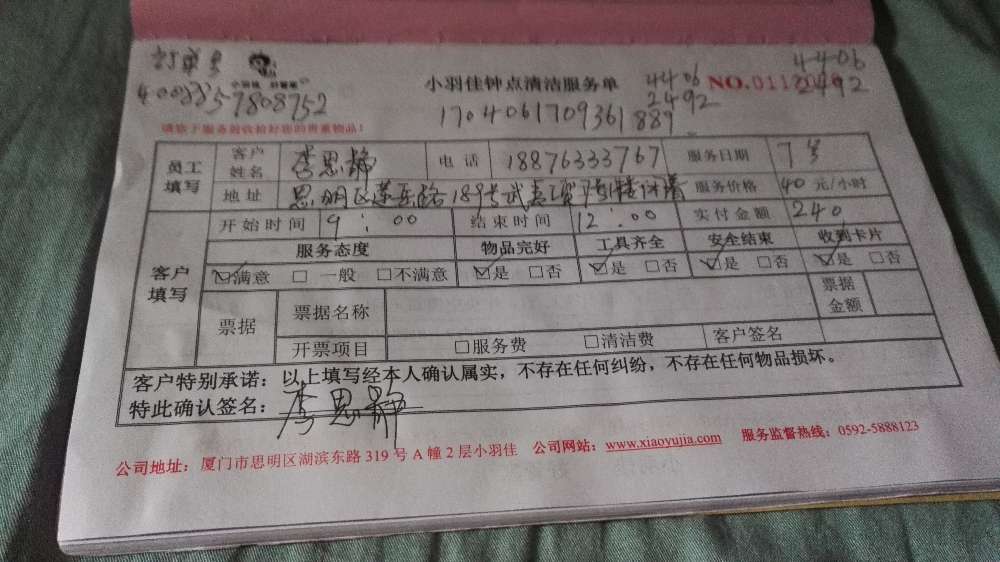 订单号
小羽佳 好管家
4406
4008857808752
小羽佳钟点清洁服务单
4406
2492
NO.
2492
17040617093618 89
请您于服务前收拾好您的贵重物品!
员工填写 客户姓名 李思静 电话 18876333767 服务日期 7号
地址 思明区莲岳路189号 服务价格 40元/小时
开始时间 9:00 结束时间 12:00 实付金额 240
客户填写 服务态度 物品完好 工具齐全 安全结束 收到卡片
☑满意 □一般 □不满意 ☑是 □否 ☑是 □否 ☑是 □否 ☑是 □否
票据 票据名称 票据金额
开票项目 □服务费 □清洁费 客户签名
客户特别承诺:以上填写经本人确认属实,不存在任何纠纷,不存在任何物品损坏。
特此确认签名:李思静
公司地址:厦门市思明区湖滨东路 319 号 A 幢 2 层小羽佳 公司网站:www.xiaoyujia.com 服务监督热线:0592-5888123